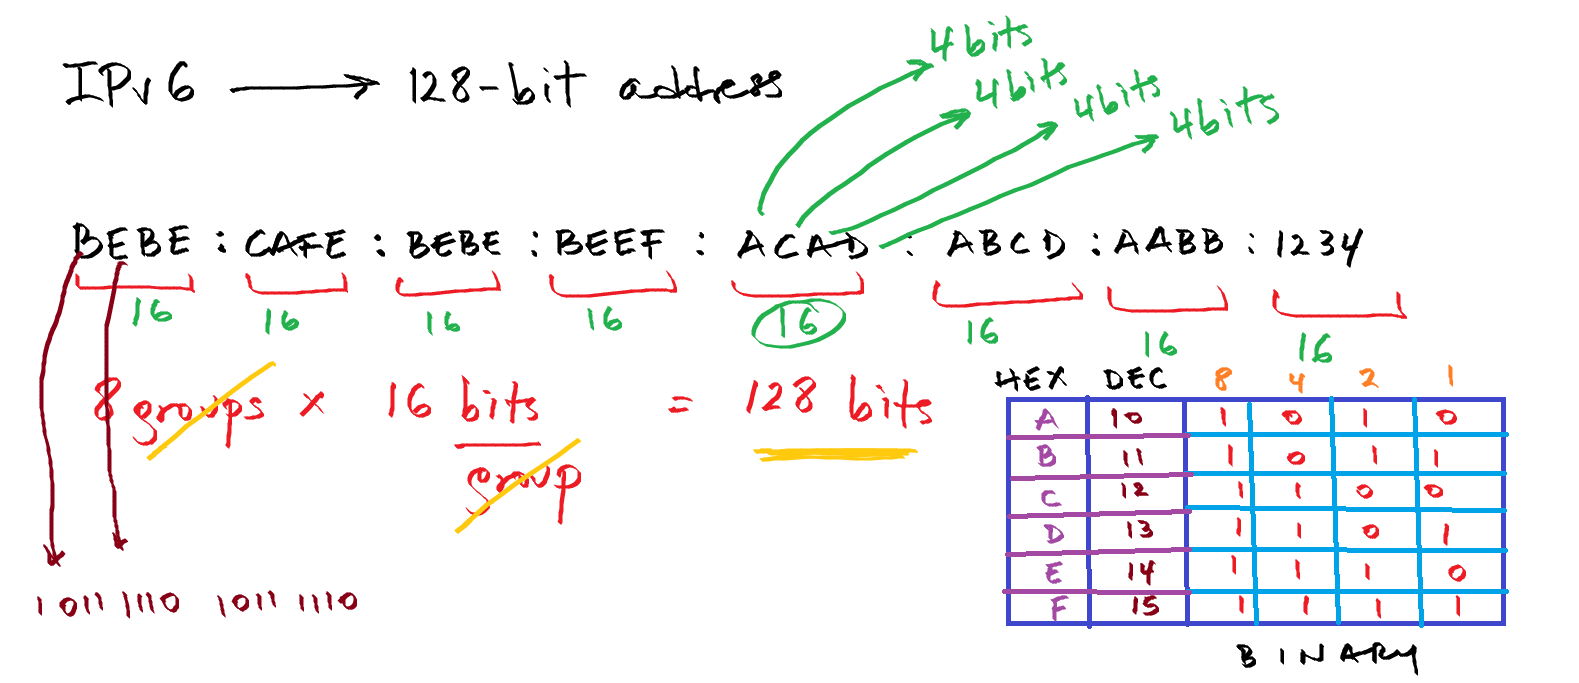 4bits
4bits
4bits
4bits
IPv6 → 128-bit address
BEBE : CAFE : BEBE : BEEF : ACAD : ABCD : AABB : 1234
16 16 16 16 16 16 16 16
8 groups x 16 bits = 128 bits
group
1011 1110 1011 1110
HEX DEC 8 4 2 1
A 10 1 0 1 0
B 11 1 0 1 1
C 12 1 1 0 0
D 13 1 1 0 1
E 14 1 1 1 0
F 15 1 1 1 1
BINARY